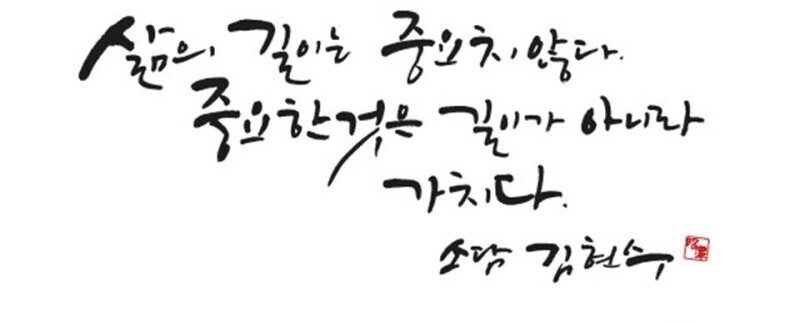 삶의 길이는 중요치 않다.
중요한 것은 길이가 아니라
가치다.
소담 김현수